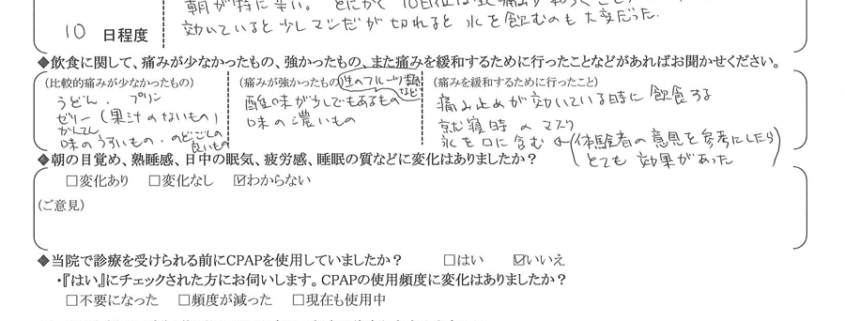 朝が特に辛い。とにかく10日位は
効いていると少しマシだが切れると水を飲むのも大変だった。
10 日程度
◆飲食に関して、痛みが少なかったもの、強かったもの、また痛みを緩和するために行ったことなどがあればお聞かせください。
(比較的痛みが少なかったもの)
うどん.プリン
ゼリー(果汁のないもの)
かんてん
味のうすいもの.のどごしの良いもの
(痛みが強かったもの)
性のフルーツ類など
酸味が少しでもあるもの
味の濃いもの
(痛みを緩和するために行ったこと)
痛み止めが効いている時に飲食する
就寝時のマスク
氷を口に含む←(体験者の意見を参考にしたらとても効果があった)
◆朝の目覚め、熟睡感、日中の眠気、疲労感、睡眠の質などに変化はありましたか?
□変化あり □変化なし ☑わからない
(ご意見)
◆当院で診療を受けられる前にCPAPを使用していましたか? □はい ☑いいえ
・『はい』にチェックされた方にお伺いします。CPAPの使用頻度に変化はありましたか?
□不要になった □頻度が減った □現在も使用中